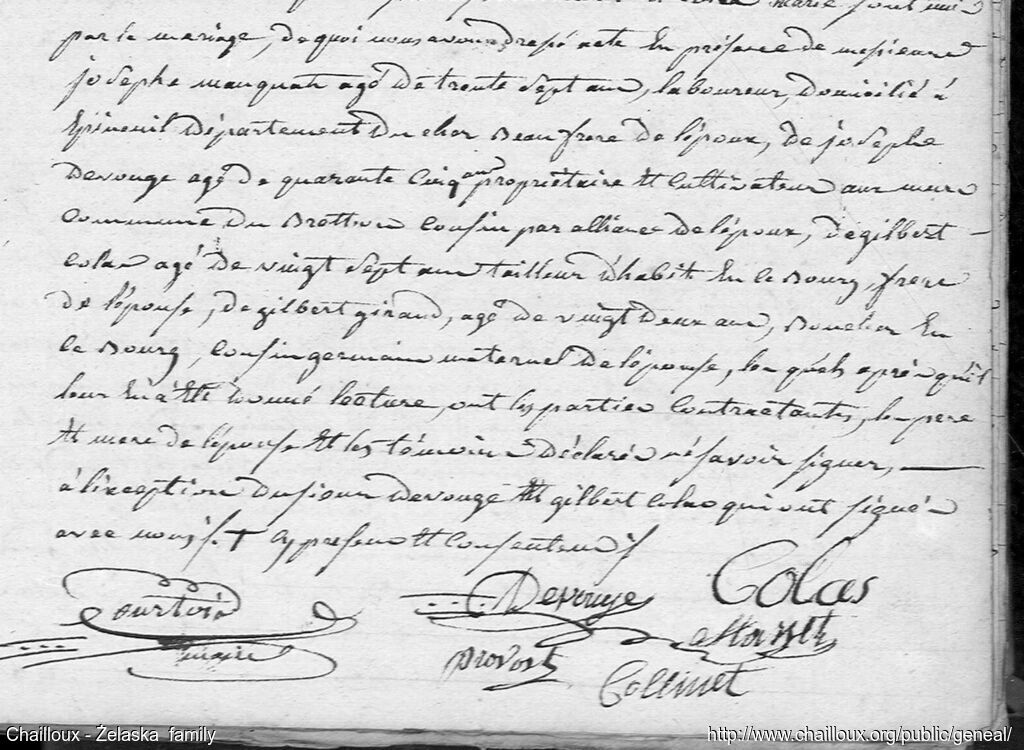 Marie sont unis
par le mariage, de quoi nous avons dressé acte En présence de messieurs
josephe manquat agé De trente Sept ans, laboureur, Domicilié à
Epineuil Département Du cher Beaufrere De l'époux, De josephe
Devouge agé De quarante Cinq ans propriétaire Et Cultivateur aux murs
Commune Du Brethon Cousin par alliance De l'époux, De gilbert
Colas agé De vingt Sept ans tailleur D'habits En ce Bourg, frere
De l'épouse, De gilbert giraud, agé De vingt Deux ans, Boucher En
Ce Bourg, Cousin germain maternel De l'épouse, les quels après qu'il
leur En a été donné lecture, ont les parties Contractantes, les pere
Et mere de l'épouse Et les témoins Déclarés né savoir signer,
à l'éxception Du sieur Devouge Et gilbert Colas qui ont signés
avec nous
presens Et Consentens
Courtois
Devouge
Colas
maire
Provost
Collinet
Chailloux - Żelaska family
http://www.chailloux.org/public/geneal/